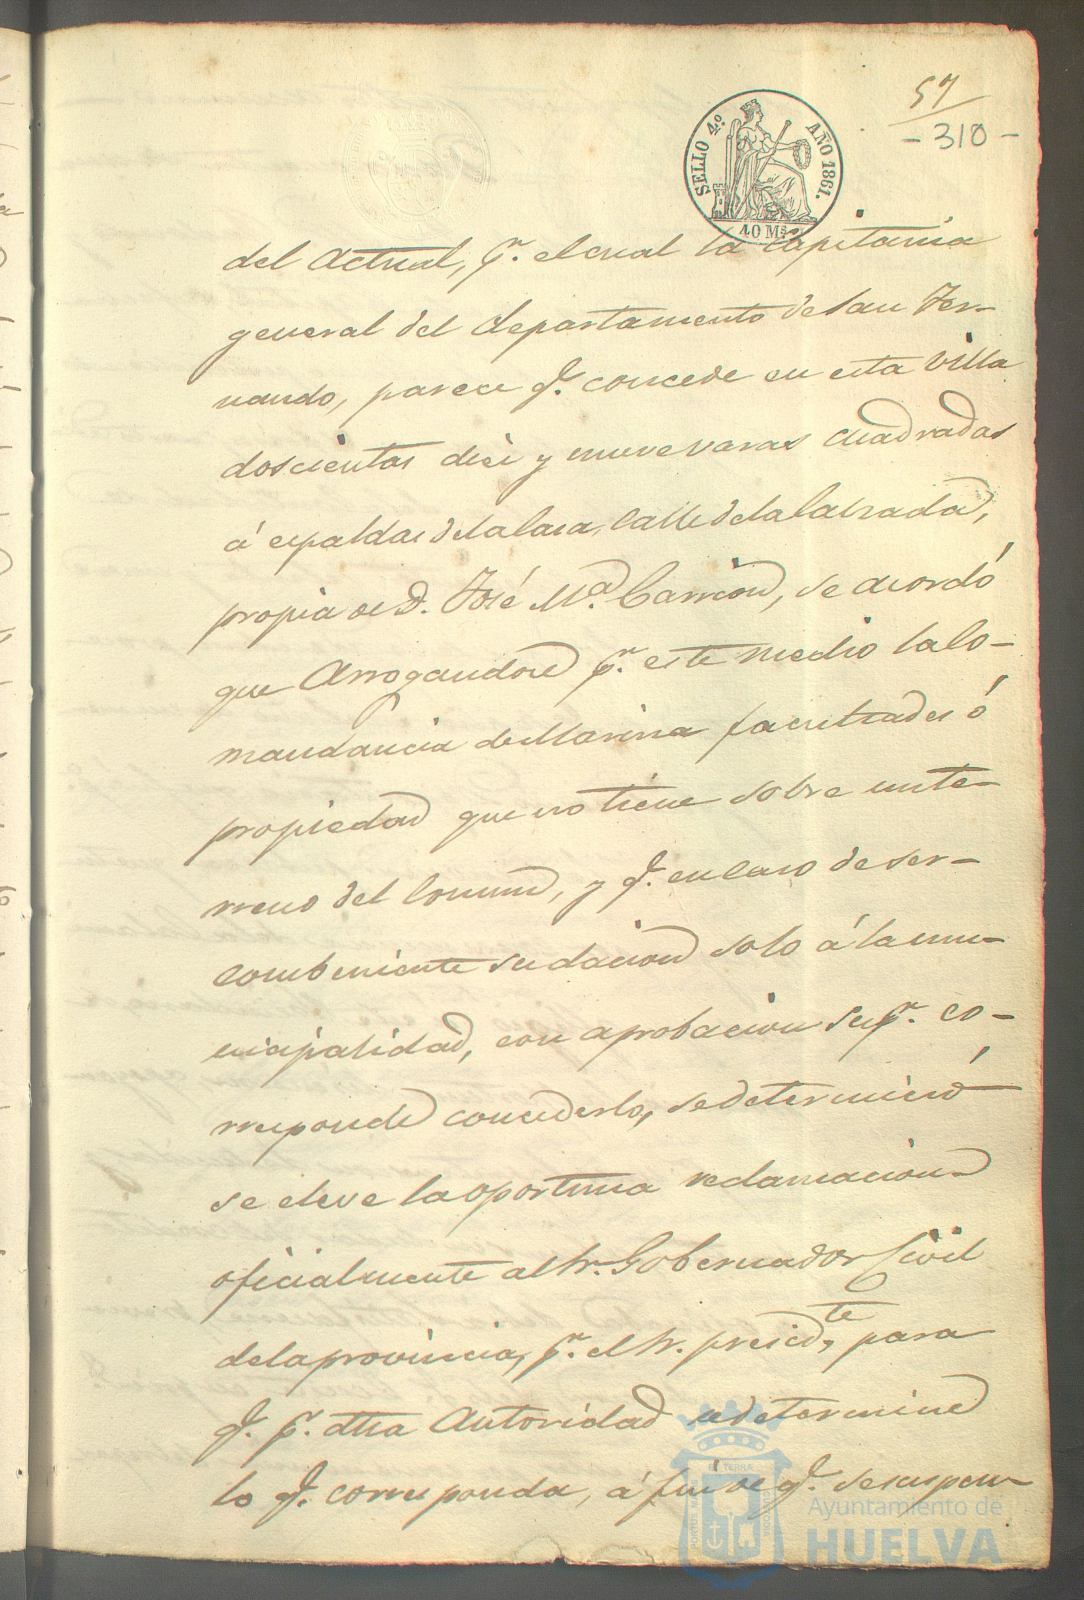 57
- 310 -
SELLO 4.º AÑO 1861.
40 Ms.
del Actual, pr. el cual la capitania
general del departamento de San Fer-
nando, parece qe. concede en esta Villa
doscientas diez y nueve varas cuadradas
á espaldas de la Casa, Calle de la Calzada,
propia de D. José Ma. Carrion, se acordó
que Arrogandose pr. este medio la Co-
mandancia de Marina facultades ó
propiedad que no tiene sobre un te-
rreno del Comun, y qe. en caso de ser
combeniente su dacion solo á la mu-
nicipalidad, con aprobacion supr. co-
rresponde concederlo, se determinó
se eleve la oportuna reclamacion
oficialmente al Sr. Gobernador Civil
de la provincia, pr. el Sr. presidte, para
qe. pr. dha Autoridad se determine
lo qe. corresponda, á fin de qe. se suspen
PORTUS MARIS ET TERRAE CUSTODIA
Ayuntamiento de
HUELVA